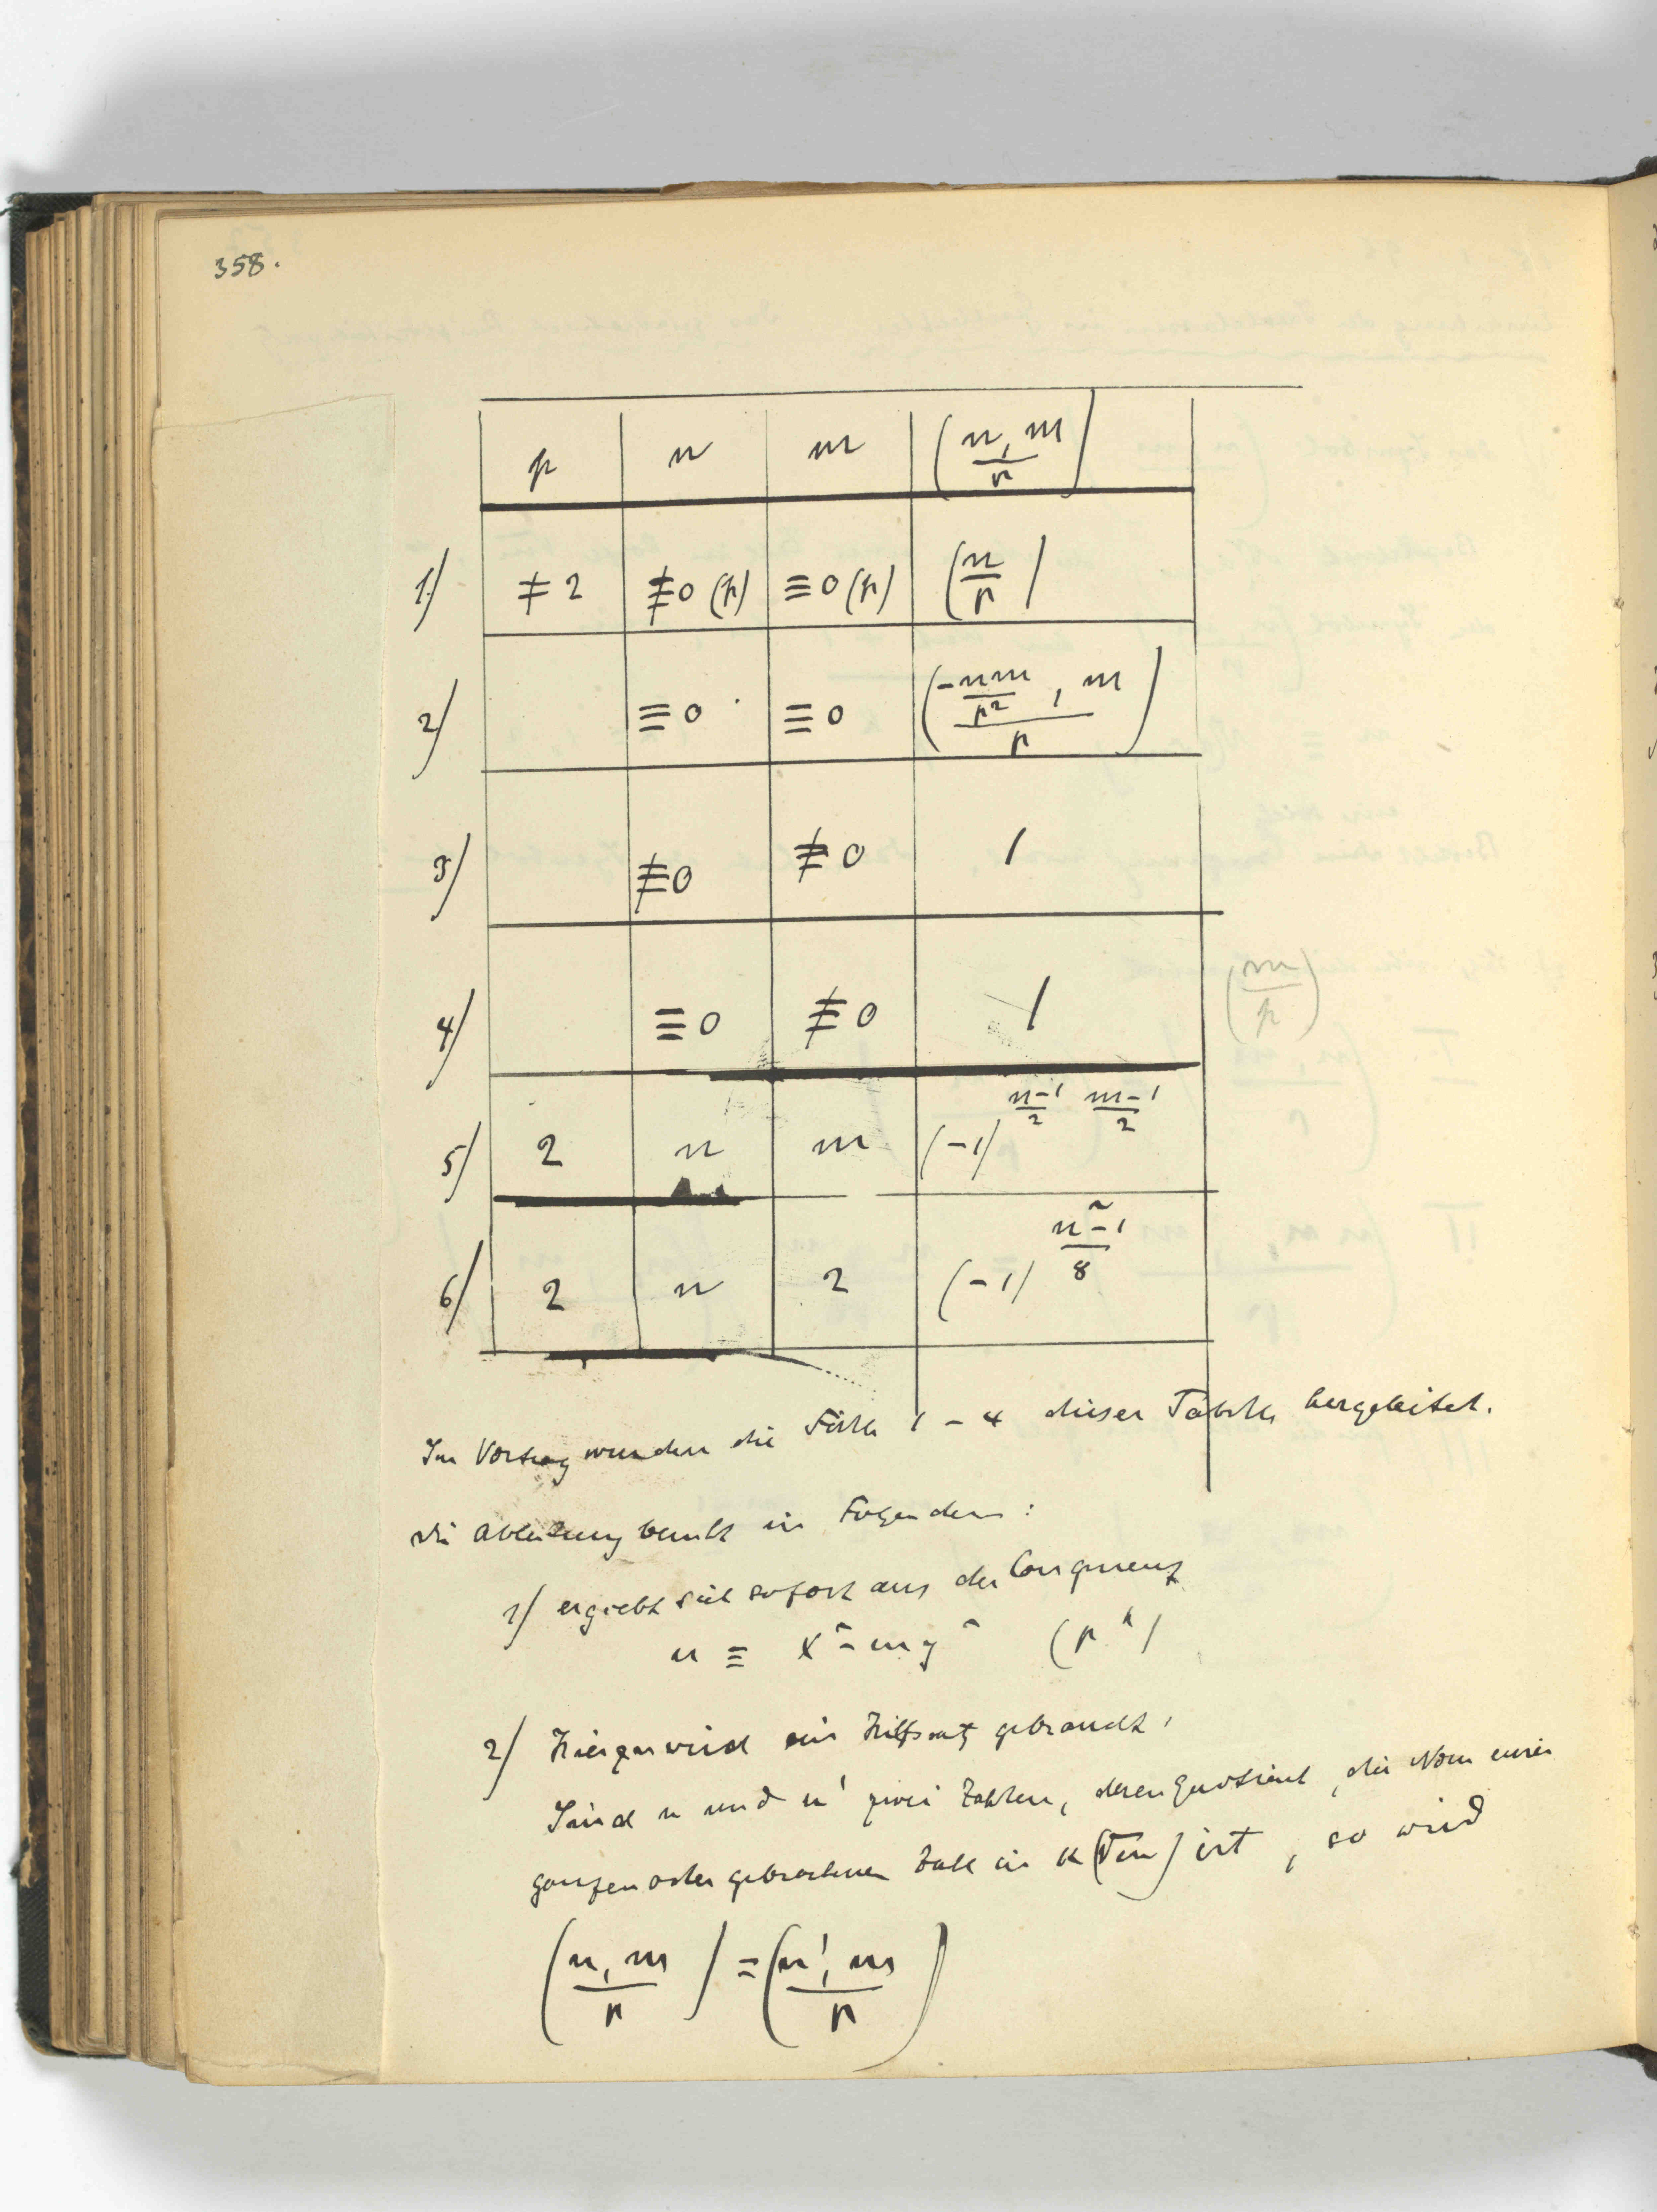 358.
p n m (n, m / p)
1) ≠ 2 ≢ 0 (p) ≡ 0 (p) (n / p)
2) ≡ 0 ≡ 0 (-nm/p² , m / p)
3) ≢ 0 ≢ 0 1
4) ≡ 0 ≢ 0 1 (m / p)
5) 2 n m (-1)^(n-1)/2 (m-1)/2
6) 2 n 2 (-1)^(n²-1)/8
Im Vortrag wurden die Fälle 1 – 4 dieser Tabelle hergeleitet.
Die Ableitung beruht in Folgendem:
1) ergiebt sich sofort aus der Congruenz
n ≡ x² - my² (p^k)
2) Hierzu wird ein Hilfssatz gebraucht,
Sind n und n' zwei Zahlen, deren Quotient, die Norm einer
ganzen oder gebrochenen Zahl in k(√m) ist, so wird
(n, m / p) = (n', m / p)